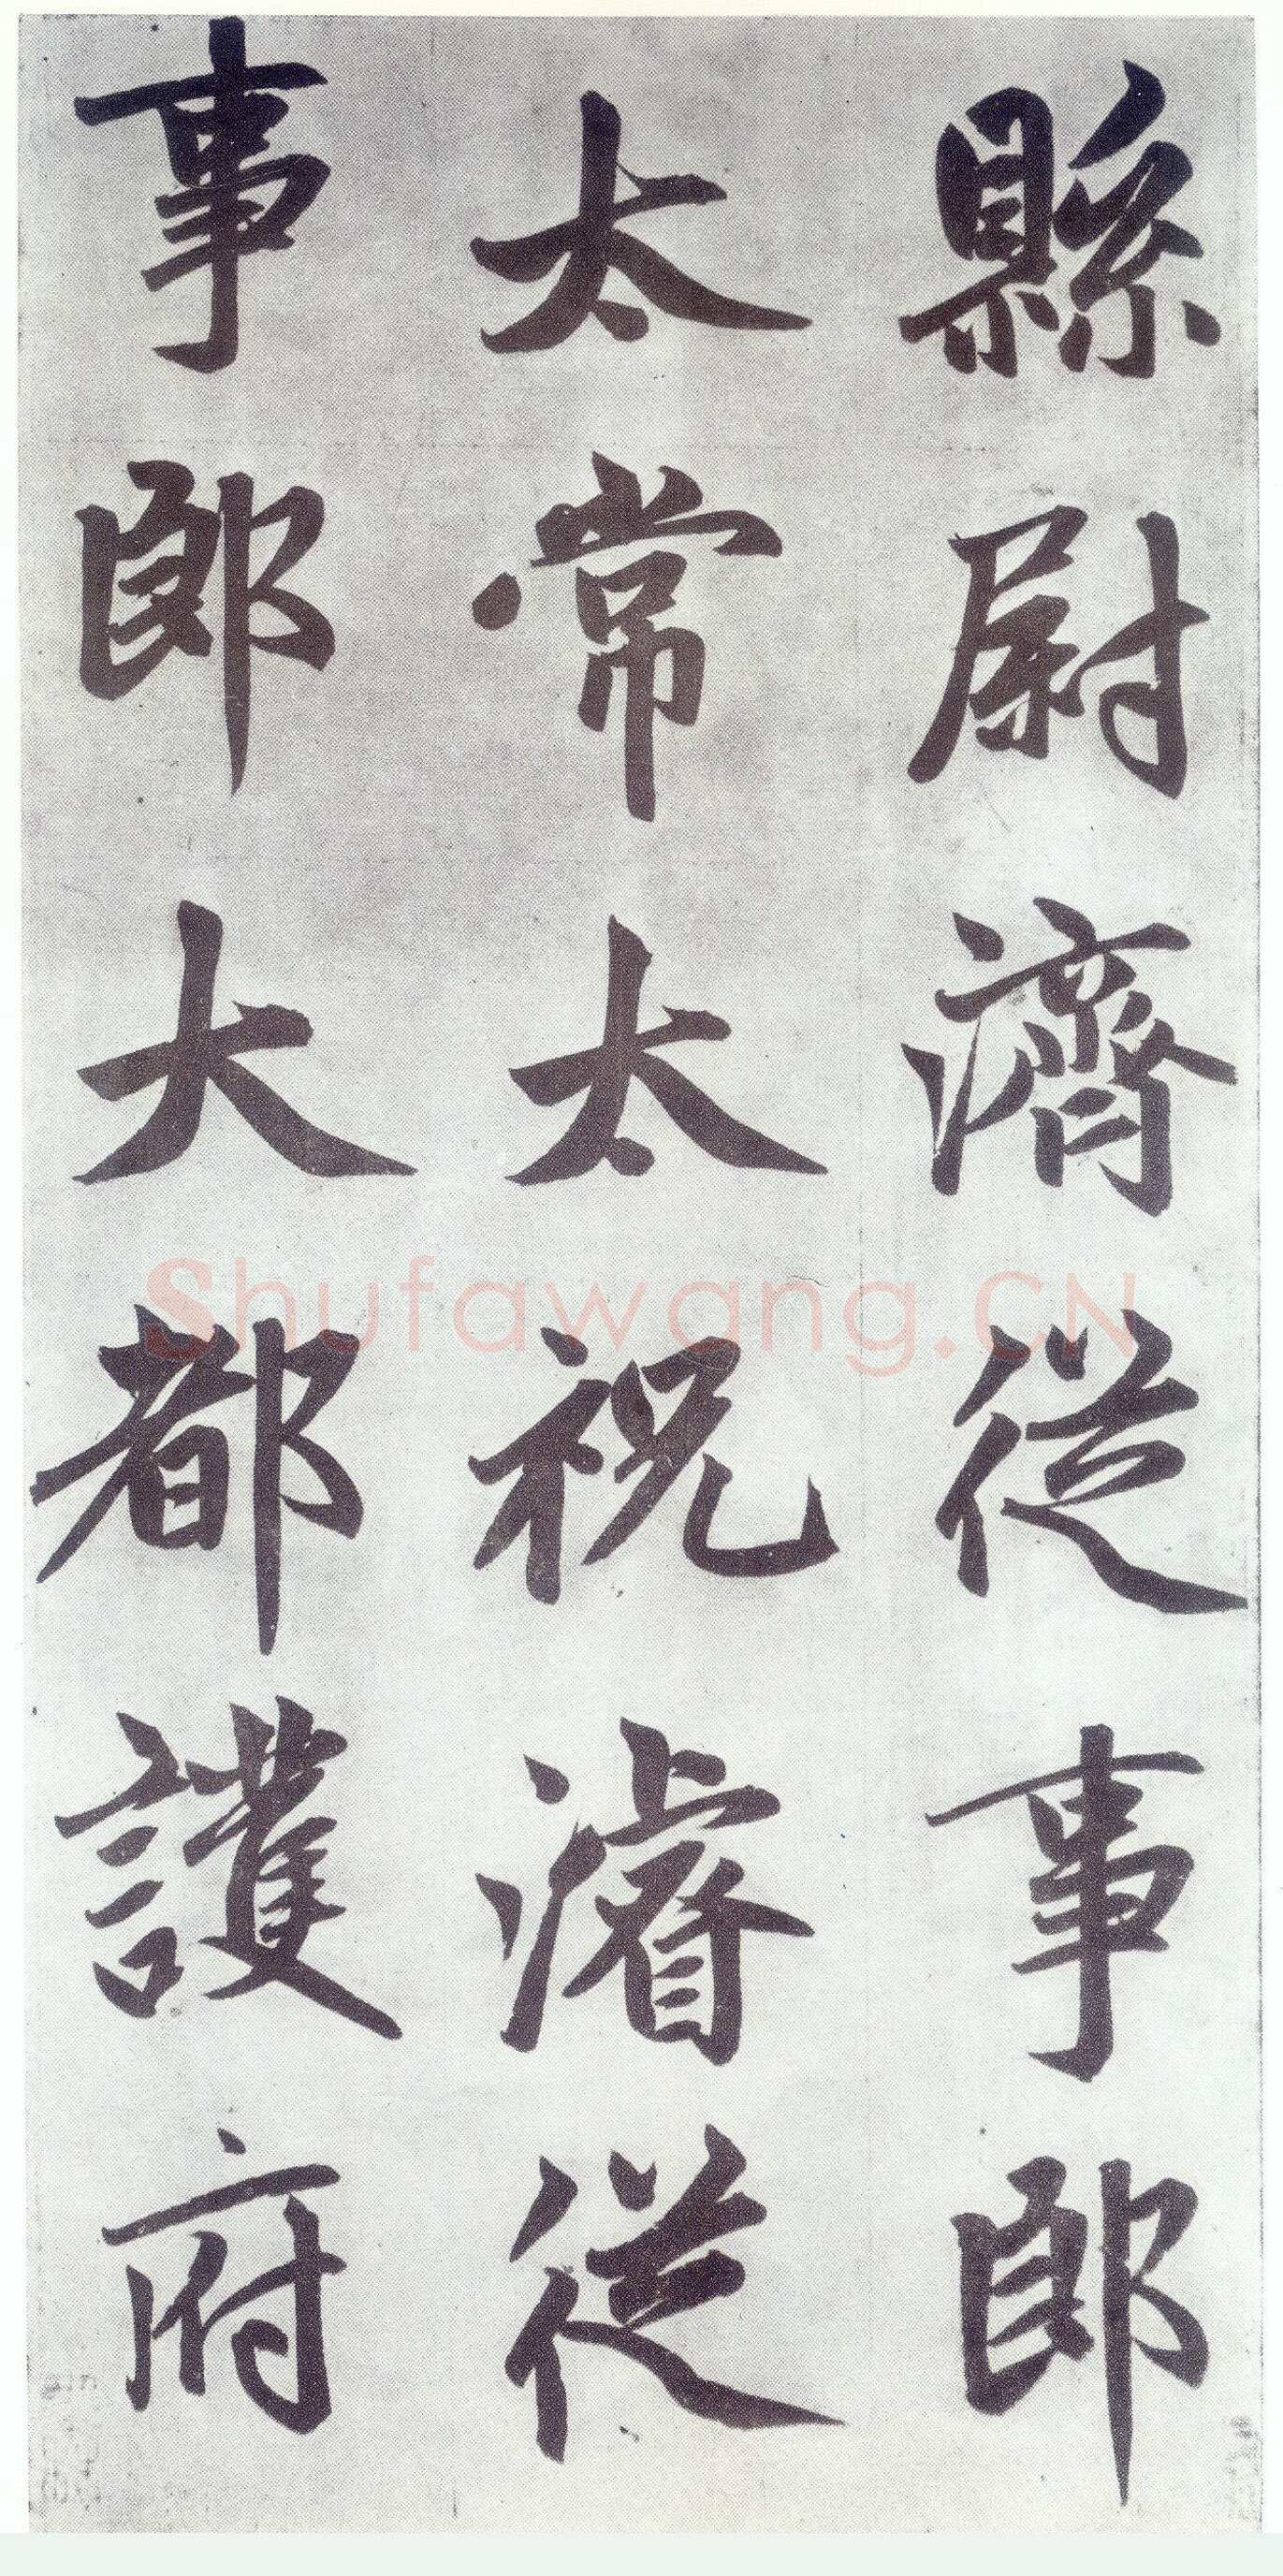 縣尉濟從事郎
太常太祝濬從
事郎大都護府
Shufawang.CN